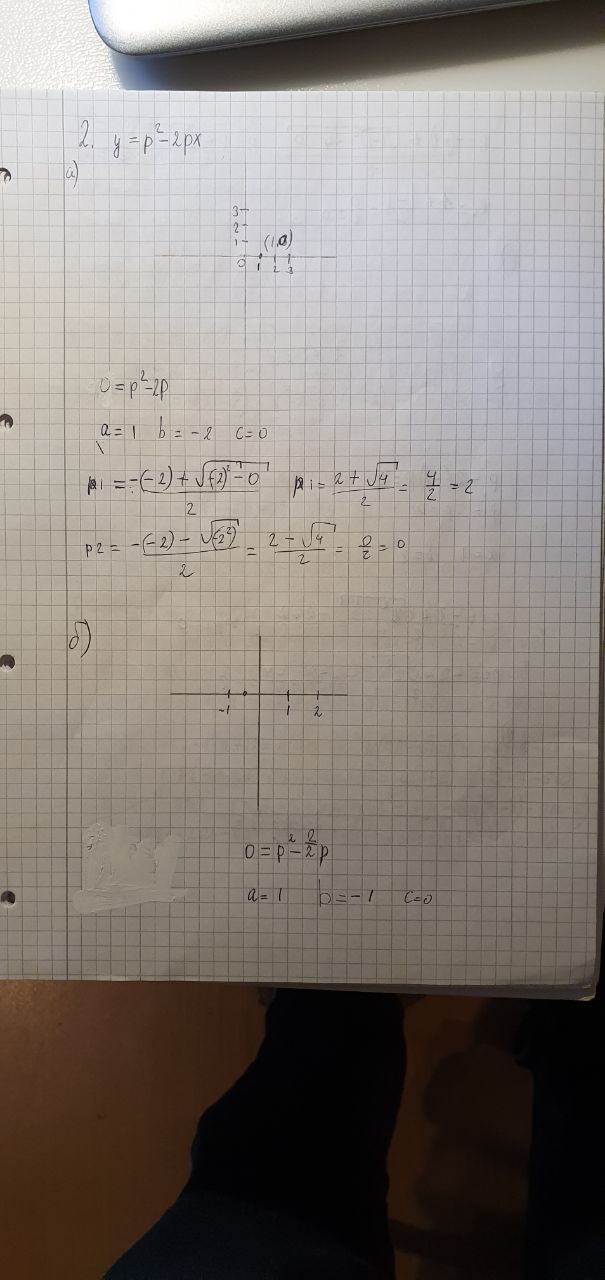 2. y = p² - 2px
а)
3
2
1 (1,0)
0 1 2 3
0 = p² - 2p
a = 1 b = -2 c = 0
p1 = -(-2) + √(-2)² - 0 / 2 p1 = 2 + √4 / 2 = 4/2 = 2
p2 = -(-2) - √(-2²) / 2 = 2 - √4 / 2 = 0/2 = 0
б)
-1 1 2
0 = p² - 2/2 p
a = 1 b = -1 c = 0